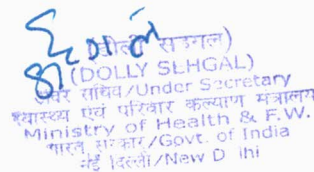 सहगल)
(DOLLY SEHGAL)
अवर सचिव/Under Secretary
स्वास्थ्य एवं परिवार कल्याण मंत्रालय
Ministry of Health & F.W.
भारत सरकार/Govt. of India
नई दिल्ली/New D lhi